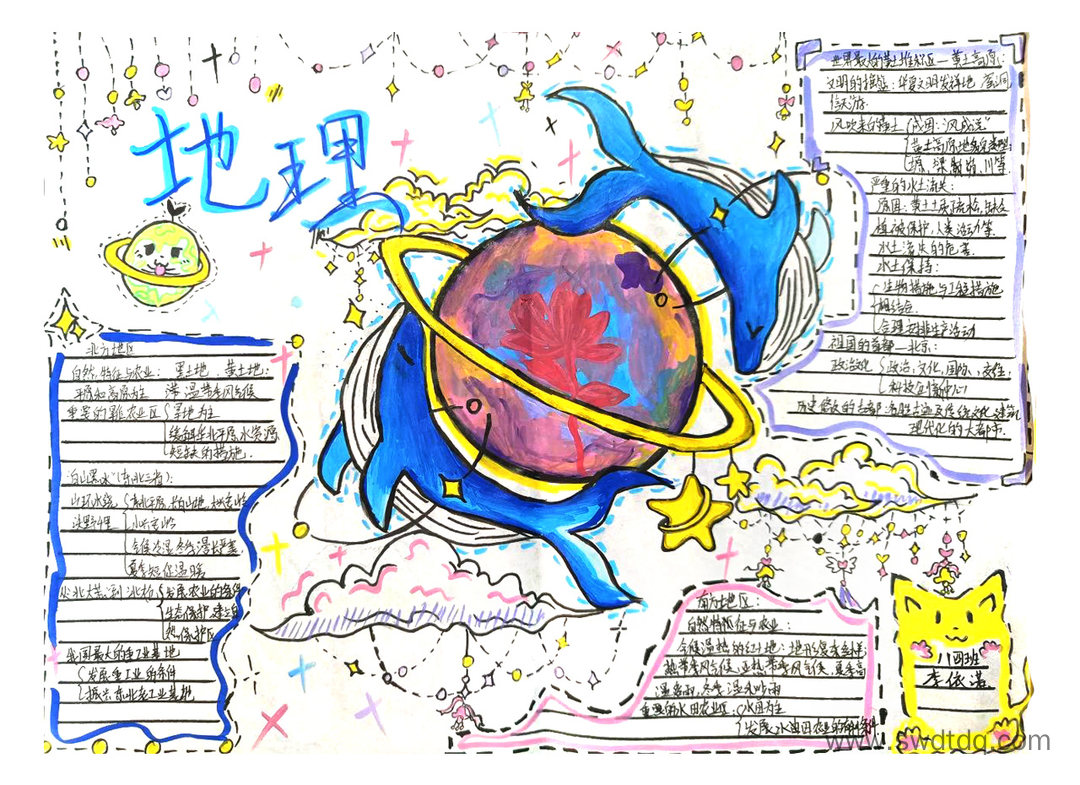 地理
北方地区
自然特征与农业：黑土地、黄土地：
平原和高原为主 温带季风气候
重要的旱作农业区 旱地为主
缓解华北平原水资源
短缺的措施.
"白山黑水"(东北三省):
山环水绕
沃野千里
气候冷湿 冬季漫长严寒
夏季短促温暖
从"北大荒"到"北大仓" 发展农业的条件
生态保护 建立自
然保护区
我国最大的重工业基地
发展重工业的条件
振兴东北老工业基地
世界最大的黄土堆积区—黄土高原:
文明的摇篮: 华夏文明发祥地 窑洞
信天游.
风吹来的黄土 成因:"风成说"
黄土高原地貌类型:
塬、梁、峁、川等
严重的水土流失:
原因: 黄土土质疏松, 缺
植被保护, 人类活动等.
水土流失的危害.
水土保持:
生物措施与工程措施
相结合.
合理安排生产活动
祖国的首都—北京:
政治文化 政治、文化、国际、交往、
科技创新中心
历史悠久的古都:名胜古迹及传统文化
现代化的大都市.
南方地区:
自然特征与农业:
气候湿热的红土地: 地形复杂多样
热带季风气候、亚热带季风气候、夏季高
温多雨, 冬季温和少雨
重要的水田农业区: 水田为主
发展水田农业的条件
八四班
李依诺
www.swdtdq.com